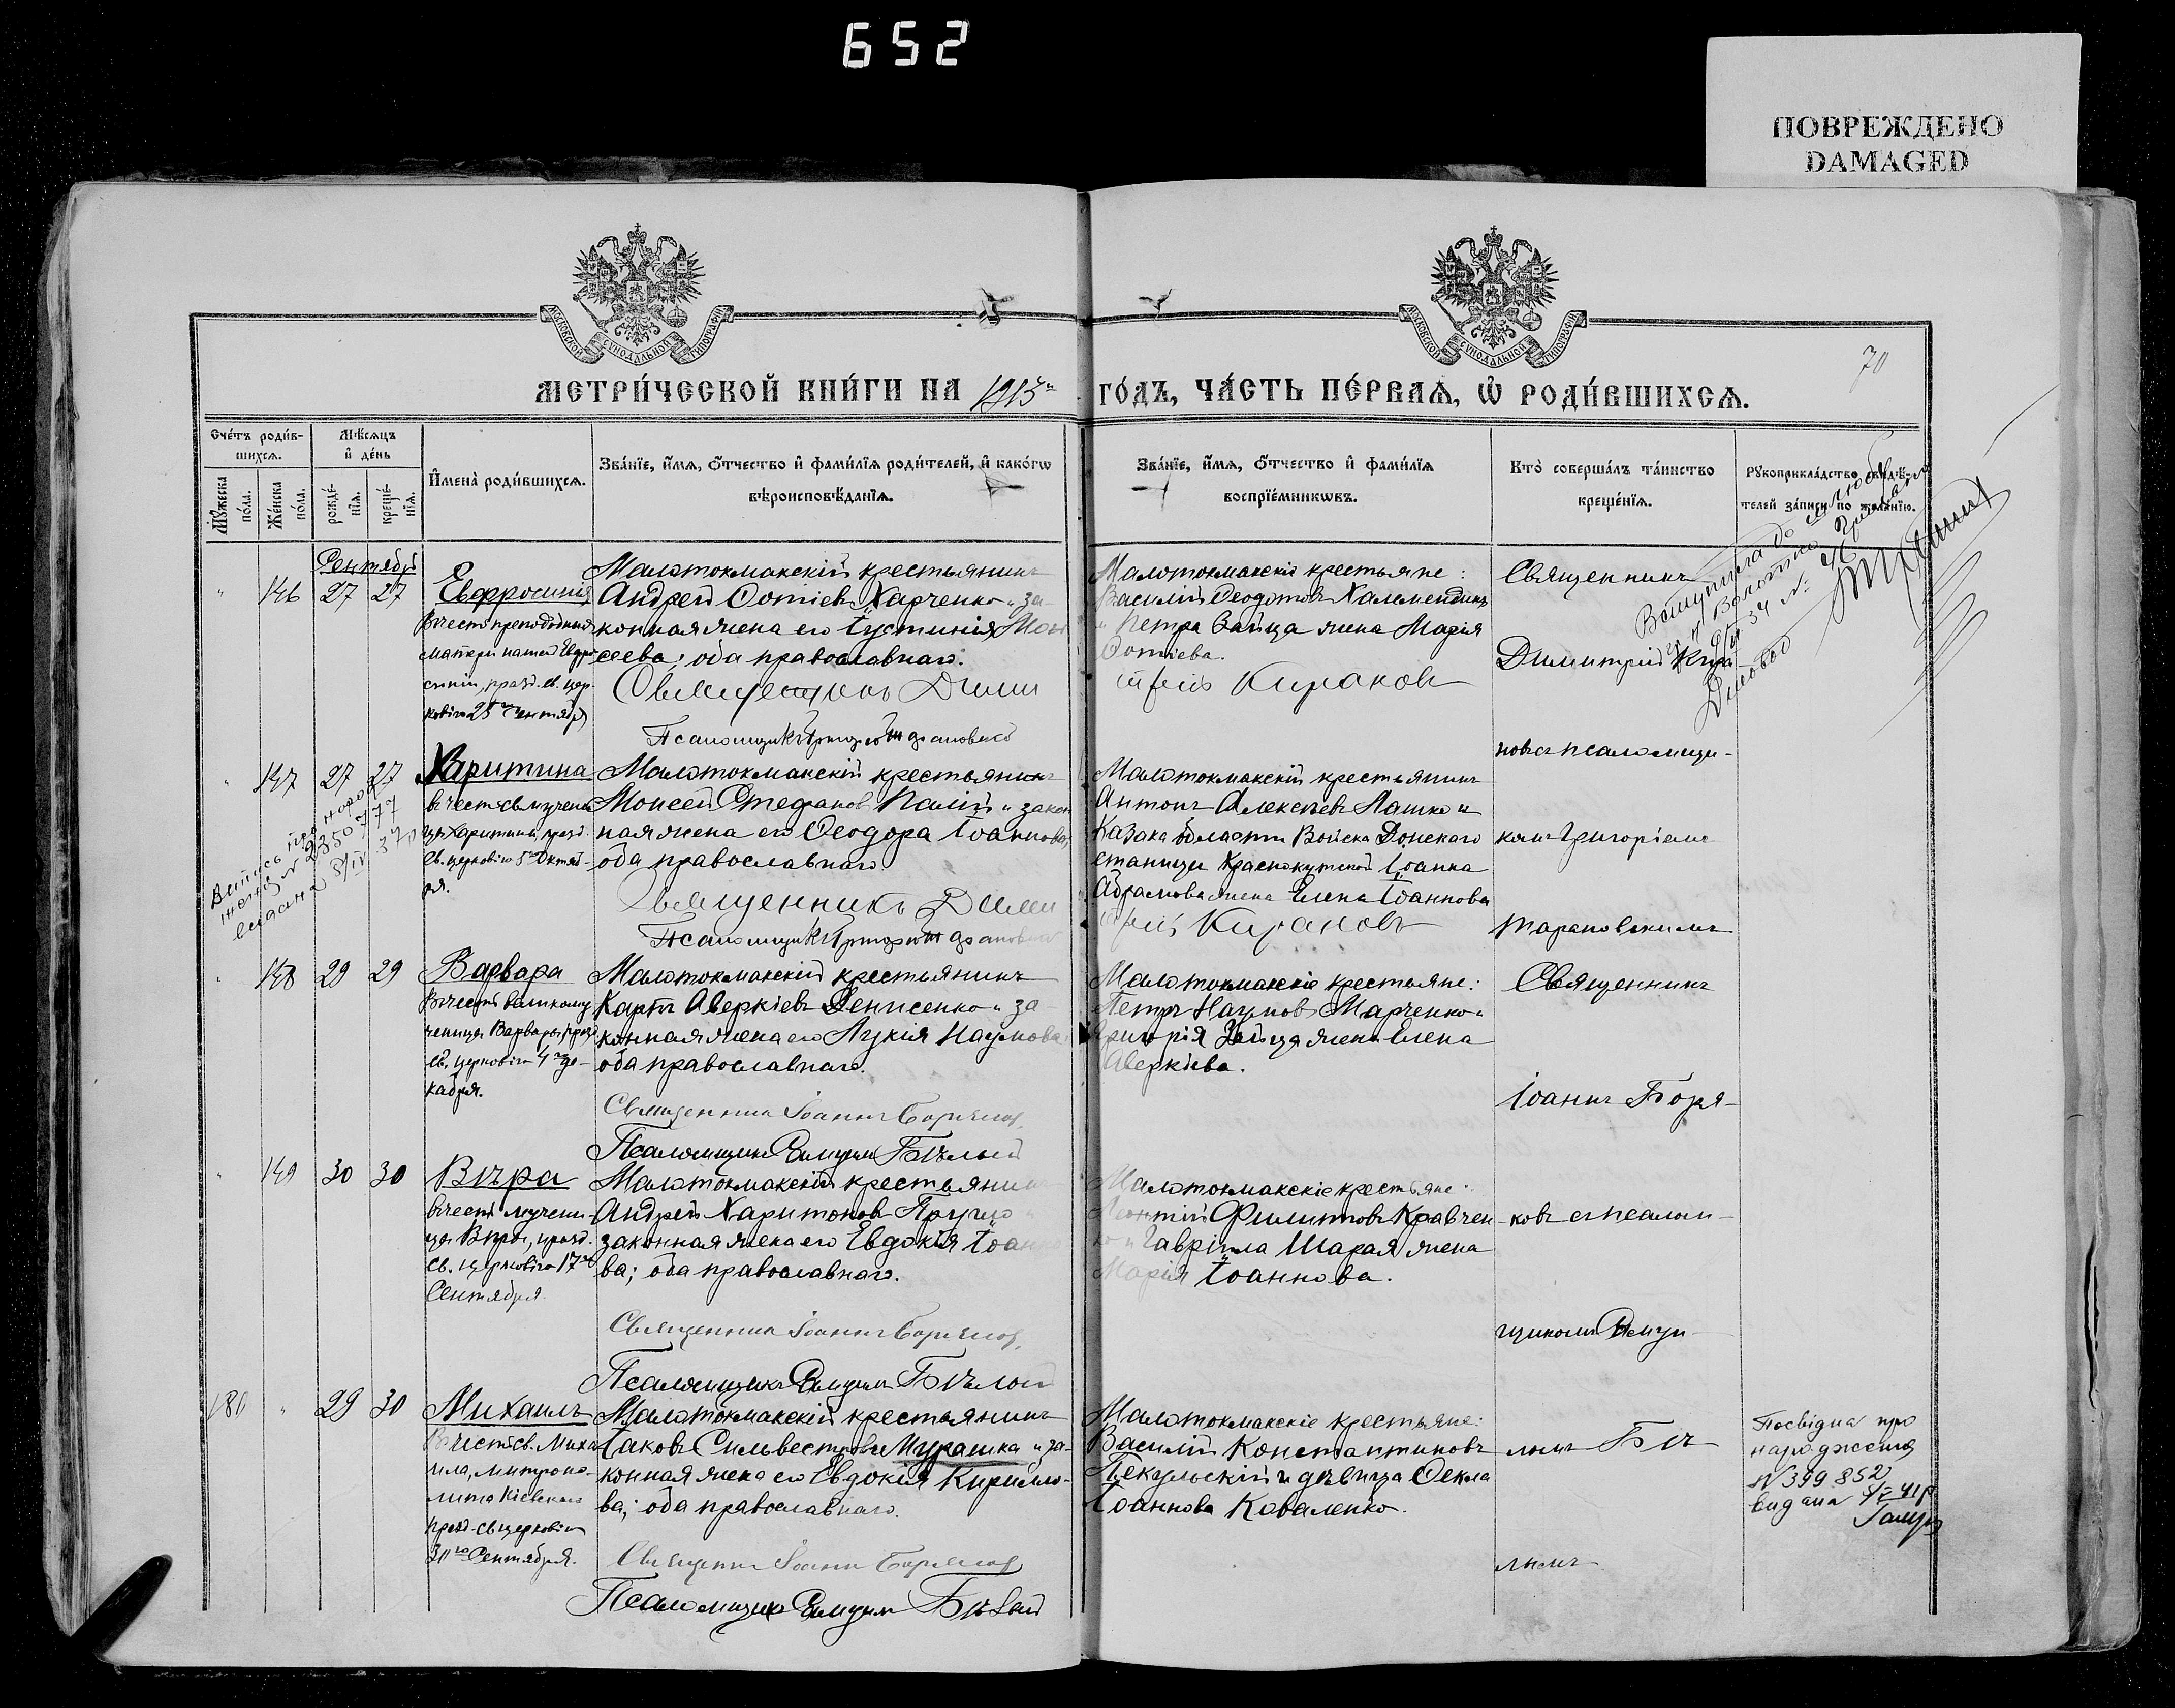 652
ПОВРЕЖДЕНО
DAMAGED
МОСКОВСКОЙ СУНОДАЛЬНОЙ ТИПОГРАФІИ
МОСКОВСКОЙ СУНОДАЛЬНОЙ ТИПОГРАФІИ
70
МЕТРИ́ЧЕСКОЙ КНИ́ГИ НА 1915й ГО́ДЪ, ЧА́СТЬ ПЕ́РВАѦ, Ѡ҆ РОДИ́ВШИХСѦ.
Сче́тъ роди́в-
шихсѧ.
Мѣ́сѧцъ
и҆ де́нь
Мꙋ́жеска по́ла.
Же́нска по́ла.
рожде́-
нїѧ.
креще́-
нїѧ.
И҆мена̀ роди́вшихсѧ.
Зва́нїе, и҆́мѧ, ѻ҆́тчество и҆ фами́лїѧ роди́телей, и҆ како́гѡ
вѣроисповѣ́данїѧ.
Зва́нїе, и҆́мѧ, ѻ҆́тчество и҆ фами́лїѧ
воспрїе́мникѡвъ.
Кто̀ соверша́лъ та́инство
креще́нїѧ.
Рꙋкоприкла́дство свидѣ́-
телей за́писи по жела́нїю.
Сентябрь
" 146 27 27
Евфросинія
Въ честь преподобныя
матери нашей Евфро-
синіи, празд. св. цер-
ковію 25го Сентября
Малотокмакскій крестьянинъ
Андрей Фотіевъ Харченко и за-
конная жена его Іустинія Мои
сеева; оба православнаго.
Священникъ Дими
Псаломщикъ Григорій
Малотокмакскіе крестьяне:
Василій Ѳеодотовъ
и Петра Зайца жена Марія
Фотіева.
трій Кирановъ
Священникъ
Димитрій Кира-
новъ съ псаломщи-
комъ Григоріемъ
Тарановскимъ
" 147 27 27
Харитина
въ честь св. мучени
цы Харитины, празд.
св. церковію 5го Октяб-
ря.
Малотокмакскій крестьянинъ
Моисей Стефановъ Палій и закон
ная жена его Ѳеодора Іоаннова;
оба православнаго.
Священникъ Дими
Псаломщикъ Григорій
Малотокмакскій крестьянинъ
Антонъ Алексѣевъ Пашко и
Казака области Войска Донского
станицы Краснокутской Іоанна
Абрамова жена Елена Іоаннова
трій Кирановъ
№ 2350777
" 148 29 29
Варвара
Въ честь великому
ченицы Варвары, празд.
св. церковію 4го де-
кабря.
Малотокмакскій крестьянинъ
Карпъ Аверкіевъ Денисенко и за-
конная жена его Лукія Наумова;
оба православнаго.
Священникъ Іоаннъ Боряковъ
Псаломщикъ Бѣлый
Малотокмакскіе крестьяне:
Петръ Наумовъ Марченко и
Григорія Зайца жена Елена
Аверкіева.
Священникъ
Іоаннъ Боря-
ковъ съ псалом-
щикомъ
" 149 30 30
Вѣра
въ честь мучени-
цы Вѣры, празд.
св. церковію 17го
Сентября
Малотокмакскій крестьянинъ
Андрей Харитоновъ
законная жена его Евдокія Іоанно
ва; оба православнаго.
Священникъ Іоаннъ Боряковъ
Псаломщикъ Бѣлый
Малотокмакскіе крестьяне:
Леонтій Филиповъ Кравчен-
ко и Гавріила Шарая жена
Марія Іоаннова.
29 30
Михаилъ
Въ честь св. Миха
ила, митропо-
лита Кіевскаго
празд. св. церковію
30го Сентября.
Малотокмакскій крестьянинъ
Іаковъ Сильвестровъ Мурашка и за-
конная жена его Евдокія Кирилло-
ва; оба православнаго.
Священникъ Іоаннъ Боряковъ
Псаломщикъ Бѣлый
Малотокмакскіе крестьяне:
Василій Константиновъ
Пекульскій и дѣвица Ѳекла
Іоаннова Коваленко.
лымъ
Посвідка про
народження
№ 399852
видана